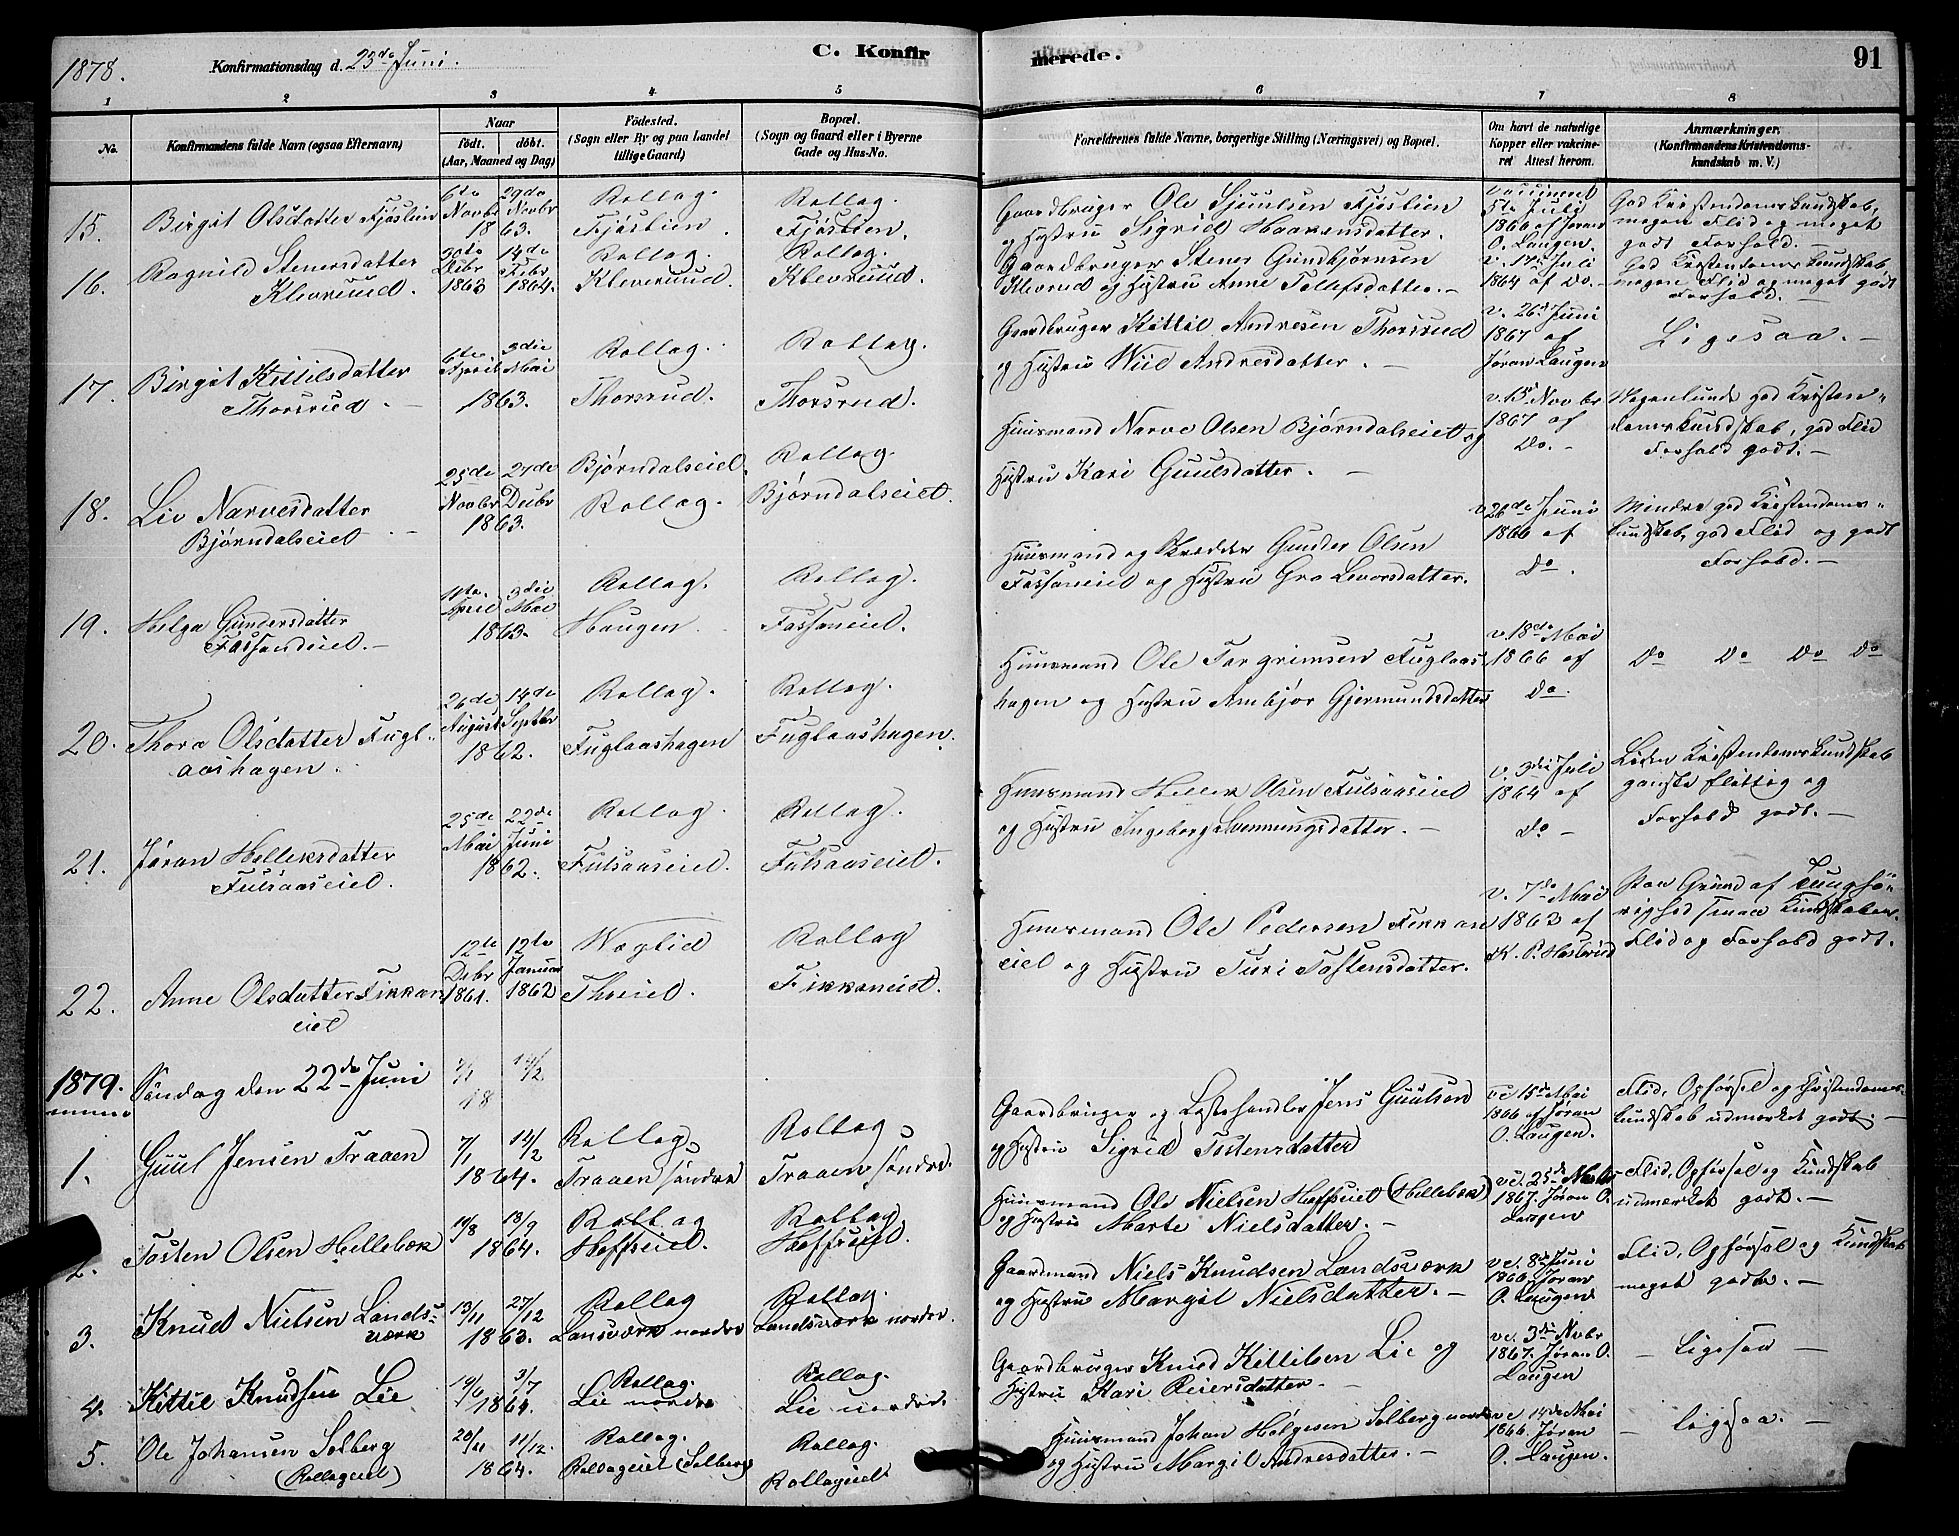 1878.
Konfirmationsdag d. 23de Juni.
C. Konfirmerede.
91
1 2 3 4 5 6 7 8
No.
Konfirmandens fulde Navn (ogsaa Efternavn)
Naar
født. døbt.
(Aar, Maaned og Dag)
Fødested.
(Sogn eller By og paa Landet
tillige Gaard)
Bopæl.
(Sogn og Gaard eller i Byerne
Gade og Hus-No.
Forældrenes fulde Navne, borgerlige Stilling (Næringsvei) og Bopæl.
Om havt de naturlige
Kopper eller vakcine-
ret Attest herom.
Anmærkninger.
(Konfirmandens Kristendoms-
kundskab m. V.)
15. Birgit Olsdatter Fjøslien
6te Novbr 29de Novbr
1863.
Rollag.
Fjøslien.
Rollag.
Fjøslien.
Gaardbruger Ole Sjuulsen Fjøslien
og Hustru Sigrid Haavensdatter.
vaccineret
5te Juli
1866 af Jøran
O. Laugen.
God Kristendomskundskab,
megen Flid og meget
godt Forhold. —
16. Ragnild Stenersdatter
Klevruud.
Debr 14de Febr
1863 1864.
Rollag.
Kleveruud.
Rollag.
Klevruud.
Gaardbruger Stener Gundbjørnsen
Klevrud og Hustru Anne Tollefsdatter. —
v. 17de Juli
1864 af Do. —
God Kristendomskundskab,
megen Flid og meget godt
Forhold. —
17. Birgit Kittilsdatter
Thorsrud. —
6te April 3die Mai
1863.
Rollag.
Thorsrud.
Rollag.
Thorsrud.
Gaardbruger Kittil Andresen Thorsrud
og Hustru Wiil Andresdatter. —
v. 26de Juni
1867 af
Jøran Laugen
Ligesaa. —
18. Liv Narvesdatter
Bjørndalseiet. —
25de Novbr 27de Debr
1863.
Bjørndalseiet.
Rollag.
Rollag.
Bjørndalseiet.
Huusmand Narve Olsen Bjørndalseiet og
Hustru Kari Guulsdatter. —
v. 13de Novbr
1867 af
Do. —
Nogenlunde god Kristen-
domskundskab, god Flid
Forhold godt. —
19. Helga Gundersdatter
Fossaneiet. —
April 3die Mai
1863.
Rollag.
Haugen.
Rollag.
Fossaneiet.
Huusmand og Skrædder Gunder Olsen
Fossaneiet og Hustru Gro Levorsdatter.
v 26de Juni
1866 af
Do.
Mindre god Kristendoms-
kundskab, god Flid og godt
Forhold. —
20. Thora Olsdatter Fugl-
aashagen.
26de August 14de Septbr
1862.
Rollag.
Fuglaashagen
Rollag.
Fuglaashagen.
Huusmand Ole Torgrimsen Fuglaas
hagen og Hustru Ambjør Gjermundsdatter
v. 18de Mai
1866 af
Do.
Do Do Do Do
21. Jøran Helleksdatter
Fulsaaseiet.
25de Mai 22de Juni
1862.
Rollag
Fulsaaseiet.
Rollag.
Fulsaaseiet.
Huusmand Hellek Olsen Fulsaaseiet
og Hustru Ingeborg Svennungsdatter. —
v. 3die Juli
1864 af
Do —
Liden Kristendomskundskab
ganske flittig og
Forhold godt. —
22. Anne Olsdatter Fikkan
eiet
12te Debr 12te Januar
1861. 1862
Weglid
Thoeiet.
Rollag
Fikkaneiet.
Huusmand Ole Pedersen Fikkan
eiet og Hustru Turi Tostensdatter.
v. 7de Mai
1863 af
K. P. Hasbrud
Paa Grund af Tunghø-
righed smaa Kundskaber.
Flid og Forhold godt.
1879. Søndag den 22de Juni
7/1 14/2
18
1. Guul Jensen Traaen
7/1 14/2
1864.
Rollag
Traaen søndre
Rollag
Traaen søndre.
Gaardbruger og Lestehandler Jens Guulsen
og Hustru Sigrid Tostensdatter
vc 15de Mai
1866 af Jøran
O. Laugen.
Flid, Opførsel og Kristendoms-
kundskab udmerket godt. —
2. Tosten Olsen Hellebæk
19/8 18/9
1864.
Rollag
Hoffseiet.
Rollag
Hoffseiet.
Huusmand Ole Nielsen Hoffseiet (Hellebæk)
og Hustru Marte Nielsdatter. —
vc. 25de
1867. Jøran O.
Laugen
Flid, Opførsel og Kundskab
udmerket godt. —
3. Knud Nielsen Lands-
værk
13/11 27/12
1863.
Rollag
Lansværk nordre
Rollag.
Landsværk nordre.
Gaardmand Niels Knudsen Landsværk
og Hustru Margit Nielsdatter. —
vc. 8de Juni
1866. Jøran
O. Laugen
Flid, Opførsel og Kundskab
meget godt. —
4. Kittil Knudsen Lie
19/6 3/7
1864.
Rollag.
Lie nordre
Rollag.
Lie nordre.
Gaardbruger Knud Kittilsen Lie og
Hustru Kari Reiersdatter —
vc. 3die Nvbr
1867. Jøran O.
Laugen
— Ligesaa —
5. Ole Johansen Solberg
(Rollageiet)
20/11 11/12.
1864.
Rollag.
Rollageiet (Solberg)
Rollag.
Rollageiet
Huusmand Johan Helgesen Solberg nordre
og Hustru Margit Andresdatter. —
vc 14de Mai
1866. Jøran
O. Laugen.
— ligesaa. —